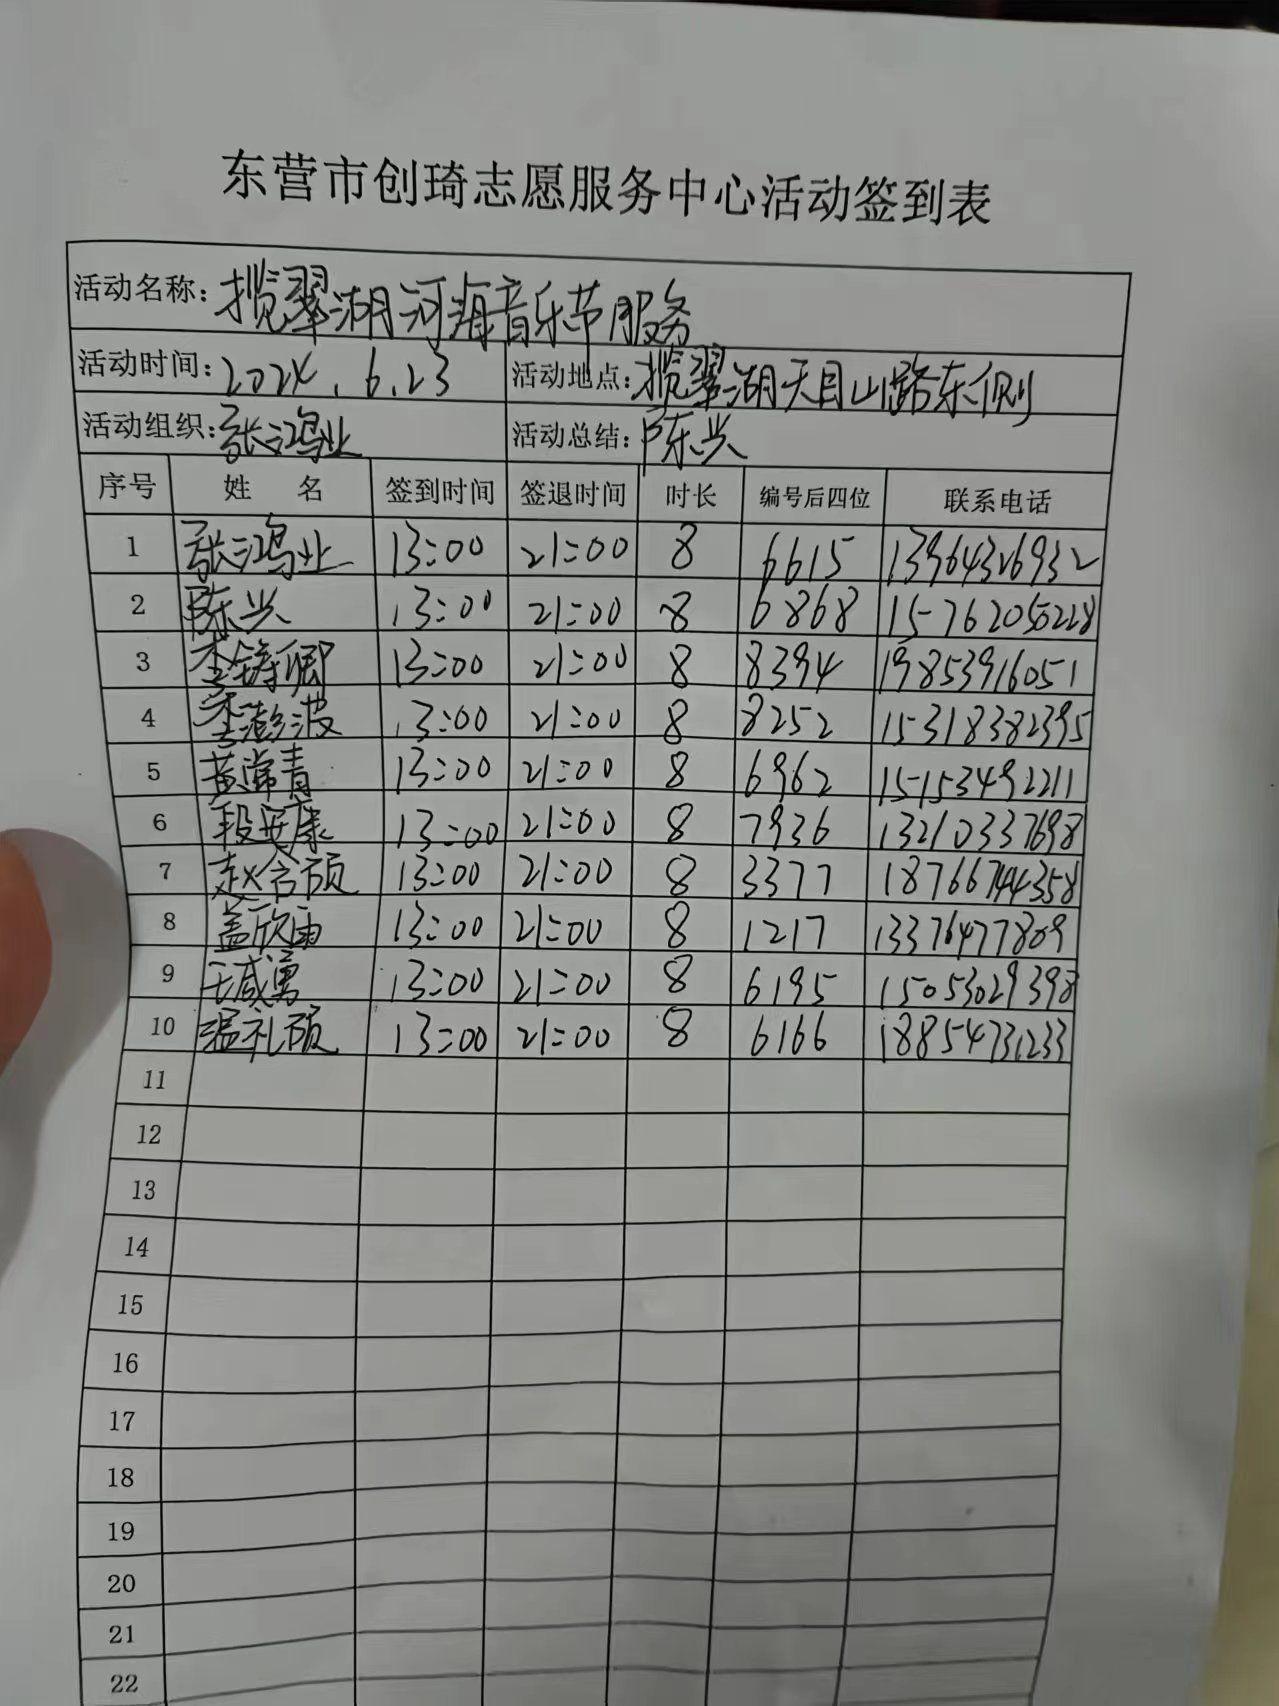 东营市创琦志愿服务中心活动签到表
活动名称：揽翠湖河海音乐节服务
活动时间：2024.6.23 活动地点：揽翠湖天目山路东侧
活动组织：张鸿业 活动总结：陈兴
序号 姓 名 签到时间 签退时间 时长 编号后四位 联系电话
1 张鸿业 13:00 21:00 8 6615 13964326932
2 陈兴 13:00 21:00 8 6868 15762050228
3 李铸卿 13:00 21:00 8 8394 19853916051
4 李澎波 13:00 21:00 8 8252 15318382395
5 黄常青 13:00 21:00 8 6962 15153492211
6 段安康 13:00 21:00 8 7936 13210337698
7 赵合硕 13:00 21:00 8 3377 18766744358
8 盖欣雨 13:00 21:00 8 1217 13376477809
9 王咸勇 13:00 21:00 8 6195 15053029398
10 温礼硕 13:00 21:00 8 6166 18854731233
11
12
13
14
15
16
17
18
19
20
21
22